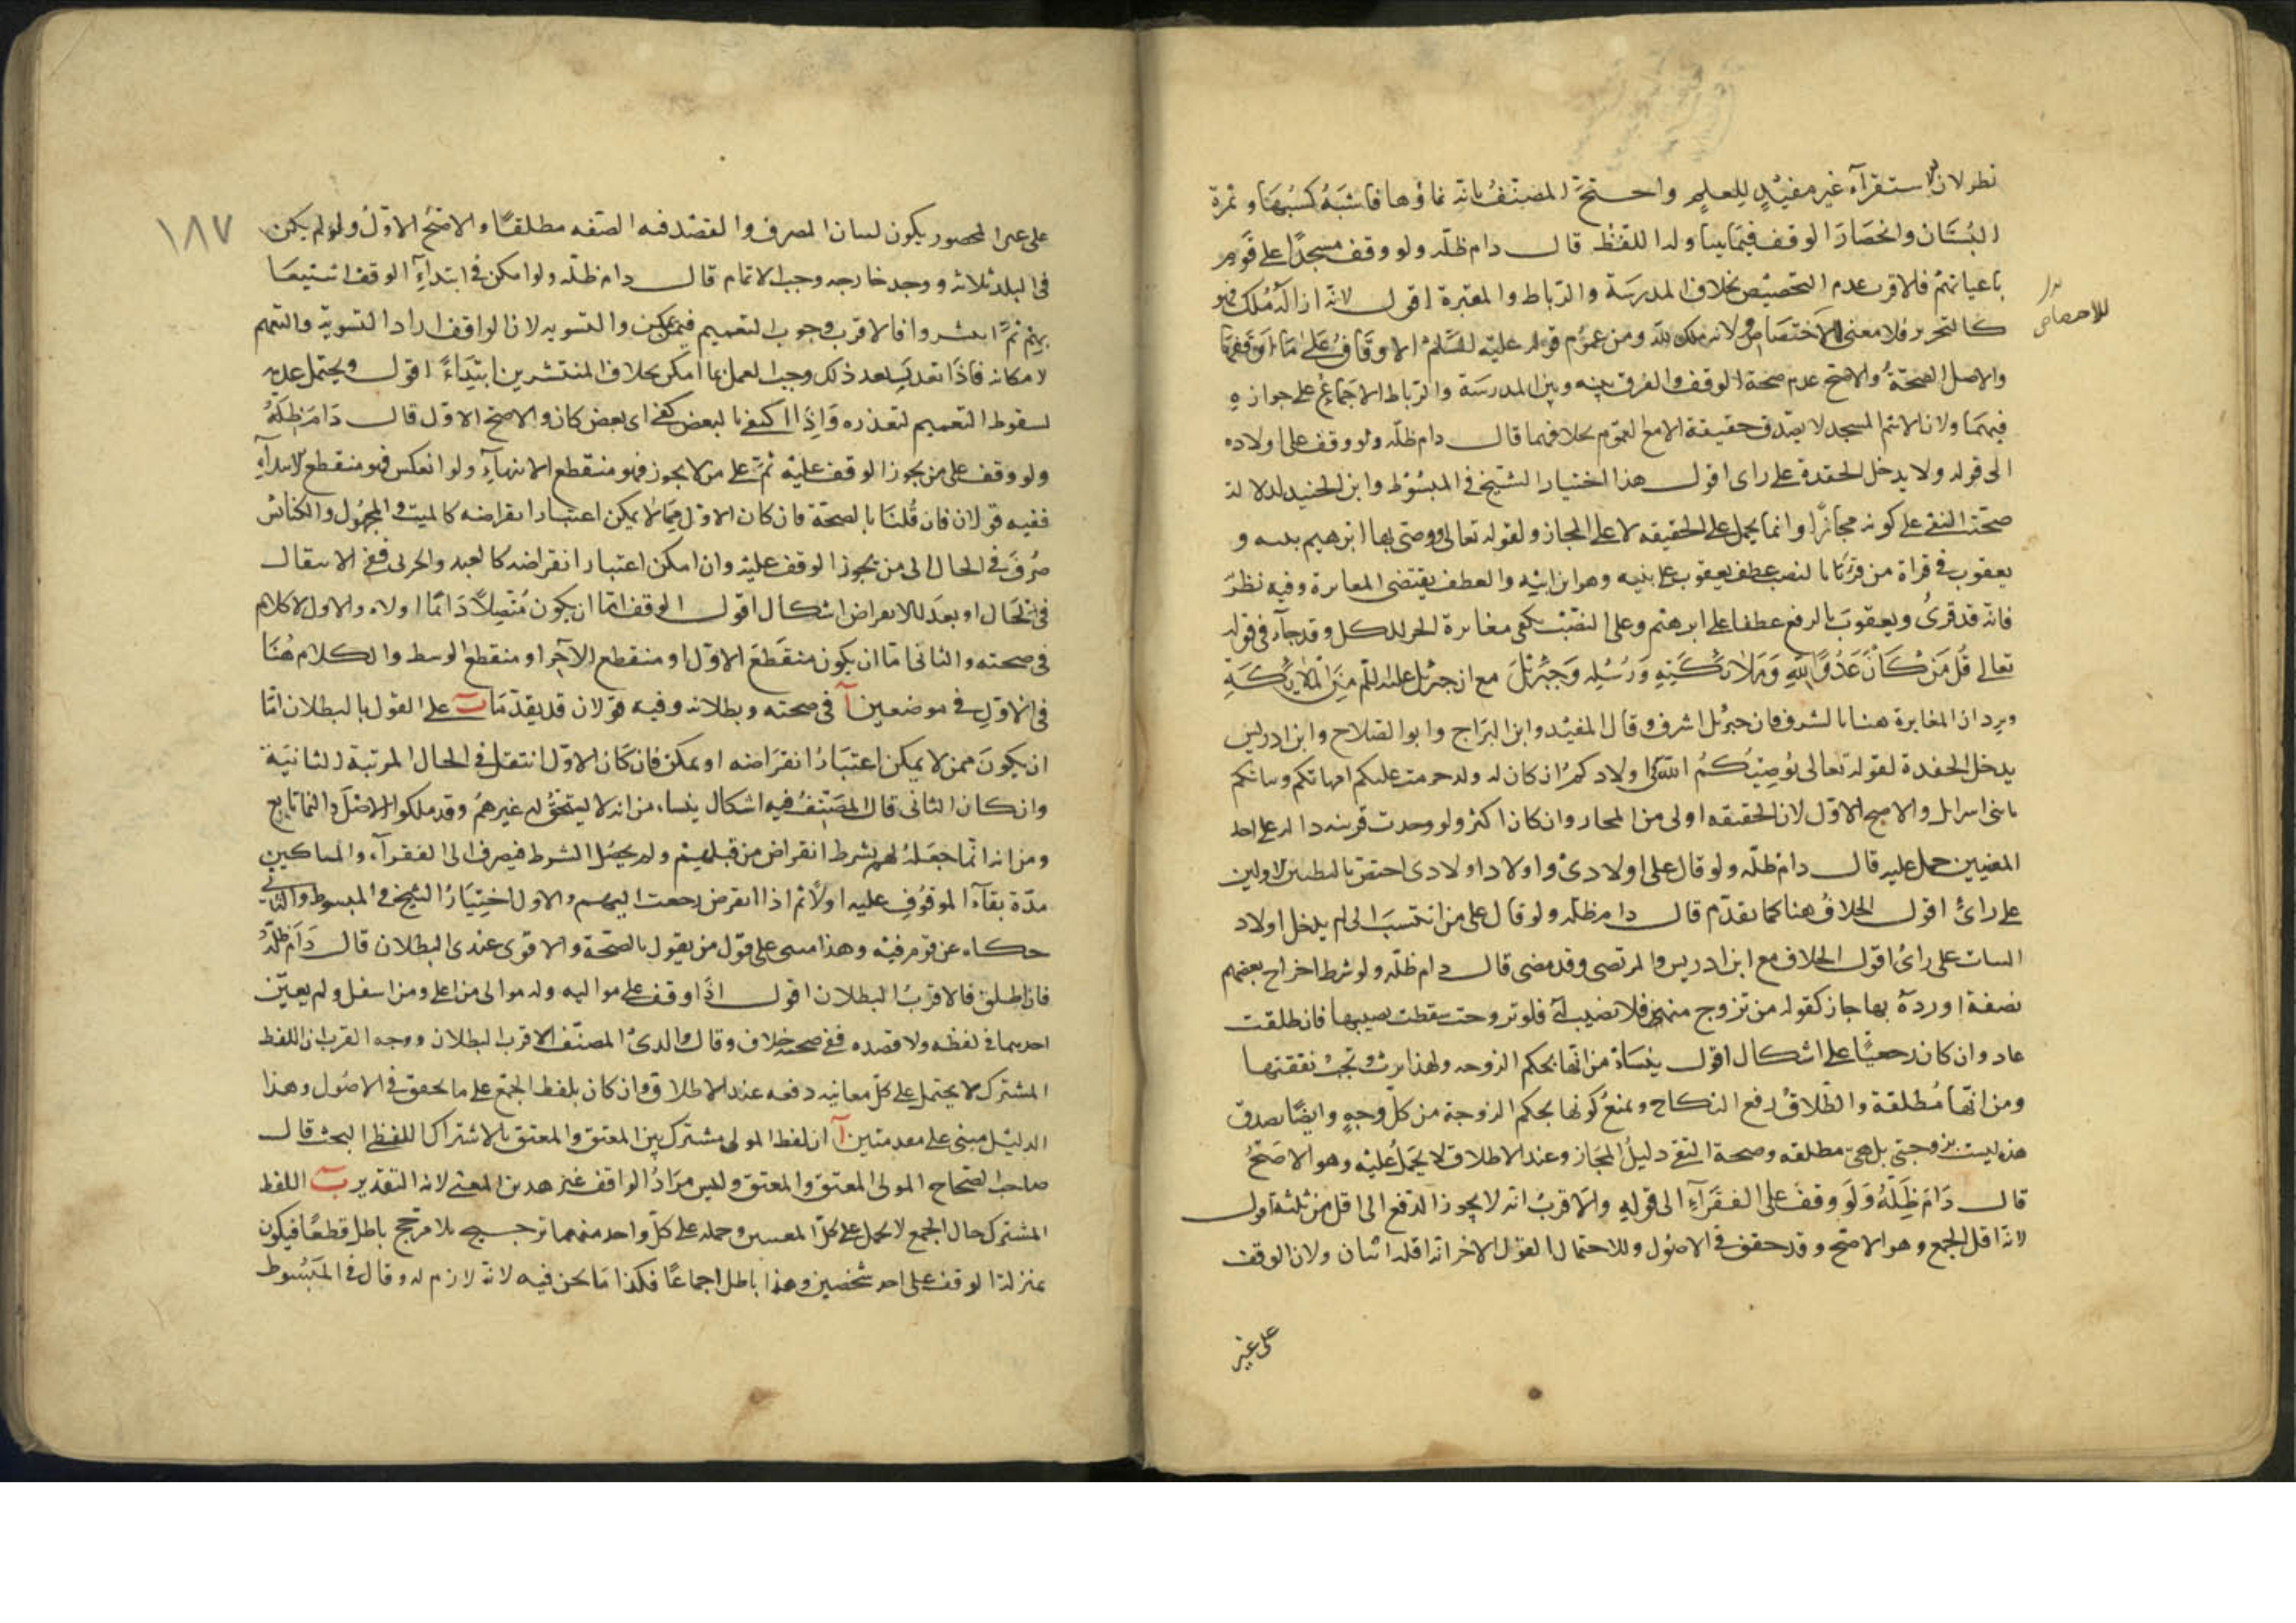 نظر لان الاستقرآء غير مفيد للعلم واحتج المصنف بانه نماؤها فاشبه كسبها وثمرة
البستان وانحصار الوقف فيما يتناوله اللفظ قال دام ظله ولو وقف مسجدا على قوم
باعيانهم فالاقرب عدم التخصيص بخلاف المدرسة والرباط والمقبرة اقول لانه ازالة ملك فهو
كالتحرير فلا معنى للاختصاص ولانه ملك لله ومن عموم قوله عليه السلم الاوقاف على ما اوقفها
للاختصاص
والاصل الصحة والاصح عدم صحة الوقف والفرق بينه وبين المدرسة والرباط الاجماع على جوازه
فيهما ولان الاسم المسجد لا يصدق حقيقة الا مع العموم بخلافهما قال دام ظله ولو وقف على اولاده
الى قوله ولا يدخل الحفدة على راى اقول هذا اختيار الشيخ فى المبسوط وابن الجنيد لدلالة
صحة النفى على كونه مجازا وانما يحمل على الحقيقه لا على المجاز ولقوله تعالى ووصى بها ابرهيم بنيه و
يعقوب فى قراة من قرأ بالنصب عطف يعقوب على بنيه وهو ابن ابنه والعطف يقتضى المغايرة وفيه نظر
فانه قد قرئ ويعقوب بالرفع عطفا على ابرهيم وعلى النصب يكفى مغايرة الجزء للكل وقد جآء فى قوله
تعالى قل من كان عدوا لله وملائكته ورسله وجبرئل مع ان جبرئل عليه السلم من الملائكة
ويرد ان المغايرة هنا بالشرف فان جبرئل اشرف وقال المفيد وابن البراج وابو الصلاح وابن ادريس
يدخل الحفدة لقوله تعالى يوصيكم الله فى اولادكم ان كان له ولد حرمت عليكم امهاتكم وبناتكم
يا بنى اسرايل والاصح الاول لان الحقيقه اولى من المجاز وان كان اكثر ولو وجدت قرينه داله على احد
المعنيين حمل عليه قال دام ظله ولو قال على اولادى واولاد اولادى اختص بالبطنين الاولين
على رائ اقول الخلاف هنا كما تقدم قال دام ظله ولو قال على من انتسب الى لم يدخل اولاد
البنات على رائ اقول الخلاف مع ابن ادريس والمرتضى وقد مضى قال دام ظله ولو شرط اخراج بعضهم
بصفة او ردة بها جاز كقوله من تزوج منهن فلا نصيب لها فلو تزوجت سقطت نصيبها فان طلقت
عاد وان كان رجعيا على اشكال اقول ينشاء من انها بحكم الزوجه ولهذا يرث وتجب نفقتها
ومن انها مطلقة والطلاق رفع النكاح ويمنع كونها بحكم الزوجة من كل وجه وايضا يصدق
هذه ليست بزوجتى بل هى مطلقه وصحة النفى دليل المجاز وعند الاطلاق لا يحمل عليه وهو الاصح
قال دام ظله ولو وقف على الفقرآء الى قوله والاقرب انه لا يجوز الدفع الى اقل من ثلثة اقول
لانه اقل الجمع وهو الاصح وقد حقق فى الاصول وللاحتمال القول الاخر انه اقله اثنان ولان الوقف
على غير
١٨٧
على غير المحصور يكون لبيان المصرف والقصد فيه الصفه مطلقا والاصح الاول ولو لم يكن
فى البلد ثلاثه ووجد خارجه وجب الاتمام قال دام ظله ولو امكن فى ابتدآء الوقف استيعا
بهم ثم انتشروا فالاقرب وجوب التعميم فيمن يمكن والتسويه لان الواقف اراد التسوية والتعميم
لامكانه فاذا تعذر بعد ذلك وجب العمل بما امكن بخلاف المنتشرين ابتداء اقول ويحتمل عدمه
لسقوط التعميم لتعذره واذا اكتفى بالبعض كفى اى بعض كان والاصح الاول قال دام ظله
ولو وقف على من يجوز الوقف عليه ثم على من لا يجوز فهو منقطع الانتهآء ولو انعكس فهو منقطع الابتدآء
ففيه قولان فان قلنا بالصحة فان كان الاول مما لا يمكن اعتبار انقراضه كالميت والمجهول والكنائس
صرف فى الحال الى من يجوز الوقف عليه وان امكن اعتبار انقراضه كالعبد والحربى ففى الانتقال
فى الحال او بعد الانقراض اشكال اقول الوقف اما ان يكون متصلا دائما اولا والاول لا كلام
فى صحته والثانى اما ان يكون منقطع الاول او منقطع الآخر او منقطع الوسط والكلام هنا
فى الاول فى موضعين آ فى صحته وبطلانه وفيه قولان قد يقدما ب على القول بالبطلان اما
ان يكون ممن لا يمكن اعتبار انقراضه او يمكن فان كان الاول انتقل فى الحال المرتبة الثانية
وان كان الثانى قال المصنف فيه اشكال ينشاء من انه لا يستحق له غيرهم وقد ملكوا الاصل والنما تابع
ومن انه انما جعله لهم بشرط انقراض من قبلهم ولم يحصل الشرط فيصرف الى الفقرآء والمساكين
مدة بقآء الموقوف عليه اولا ثم اذا انقرض رجعت اليهم والاول اختيار الشيخ فى المبسوط والثانى
حكاه عن قوم فيه وهذا مبنى على قول من يقول بالصحة والاقوى عندى البطلان قال دام ظله
فان اطلق فالاقرب البطلان اقول اذا وقف على مواليه وله موالى من اعلى ومن اسفل ولم يعين
احدهما فى لفظه ولا قصده ففى صحته خلاف وقال والدى المصنف الاقرب البطلان ووجه القرب ان اللفظ
المشترك لا يحتمل على كل معانيه دفعه عند الاطلاق وان كان بلفظ الجمع على ما تحقق فى الاصول وهذا
الدليل مبنى على مقدمتين آ ان لفظ المولى مشترك بين المعتق والمعتق بالاشتراك اللفظى البحث قال
صاحب الصحاح المولى المعتق والمعتق وليس مراد الواقف غير هذين المعنى لانه التقدير ب اللفظ
المشترك حال الجمع لا يحمل على كل المعنيين وحمله على كل واحد منهما ترجيح بلا مرجح باطل قطعا فيكون
بمنزلة الوقف على احد شخصين وهذا باطل اجماعا فكذا ما نحن فيه لانه لازم له وقال فى المبسوط